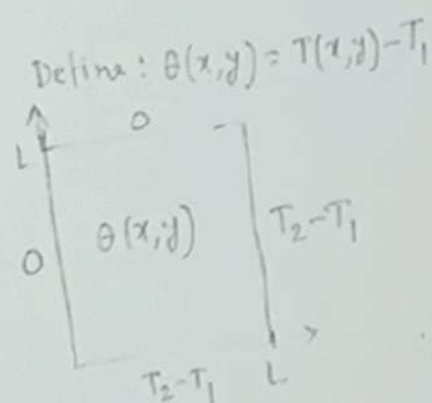 Define: θ(x,y) = T(x,y)-T₁
0
L
θ(x,y)
T₂-T₁
0
T₂-T₁
L